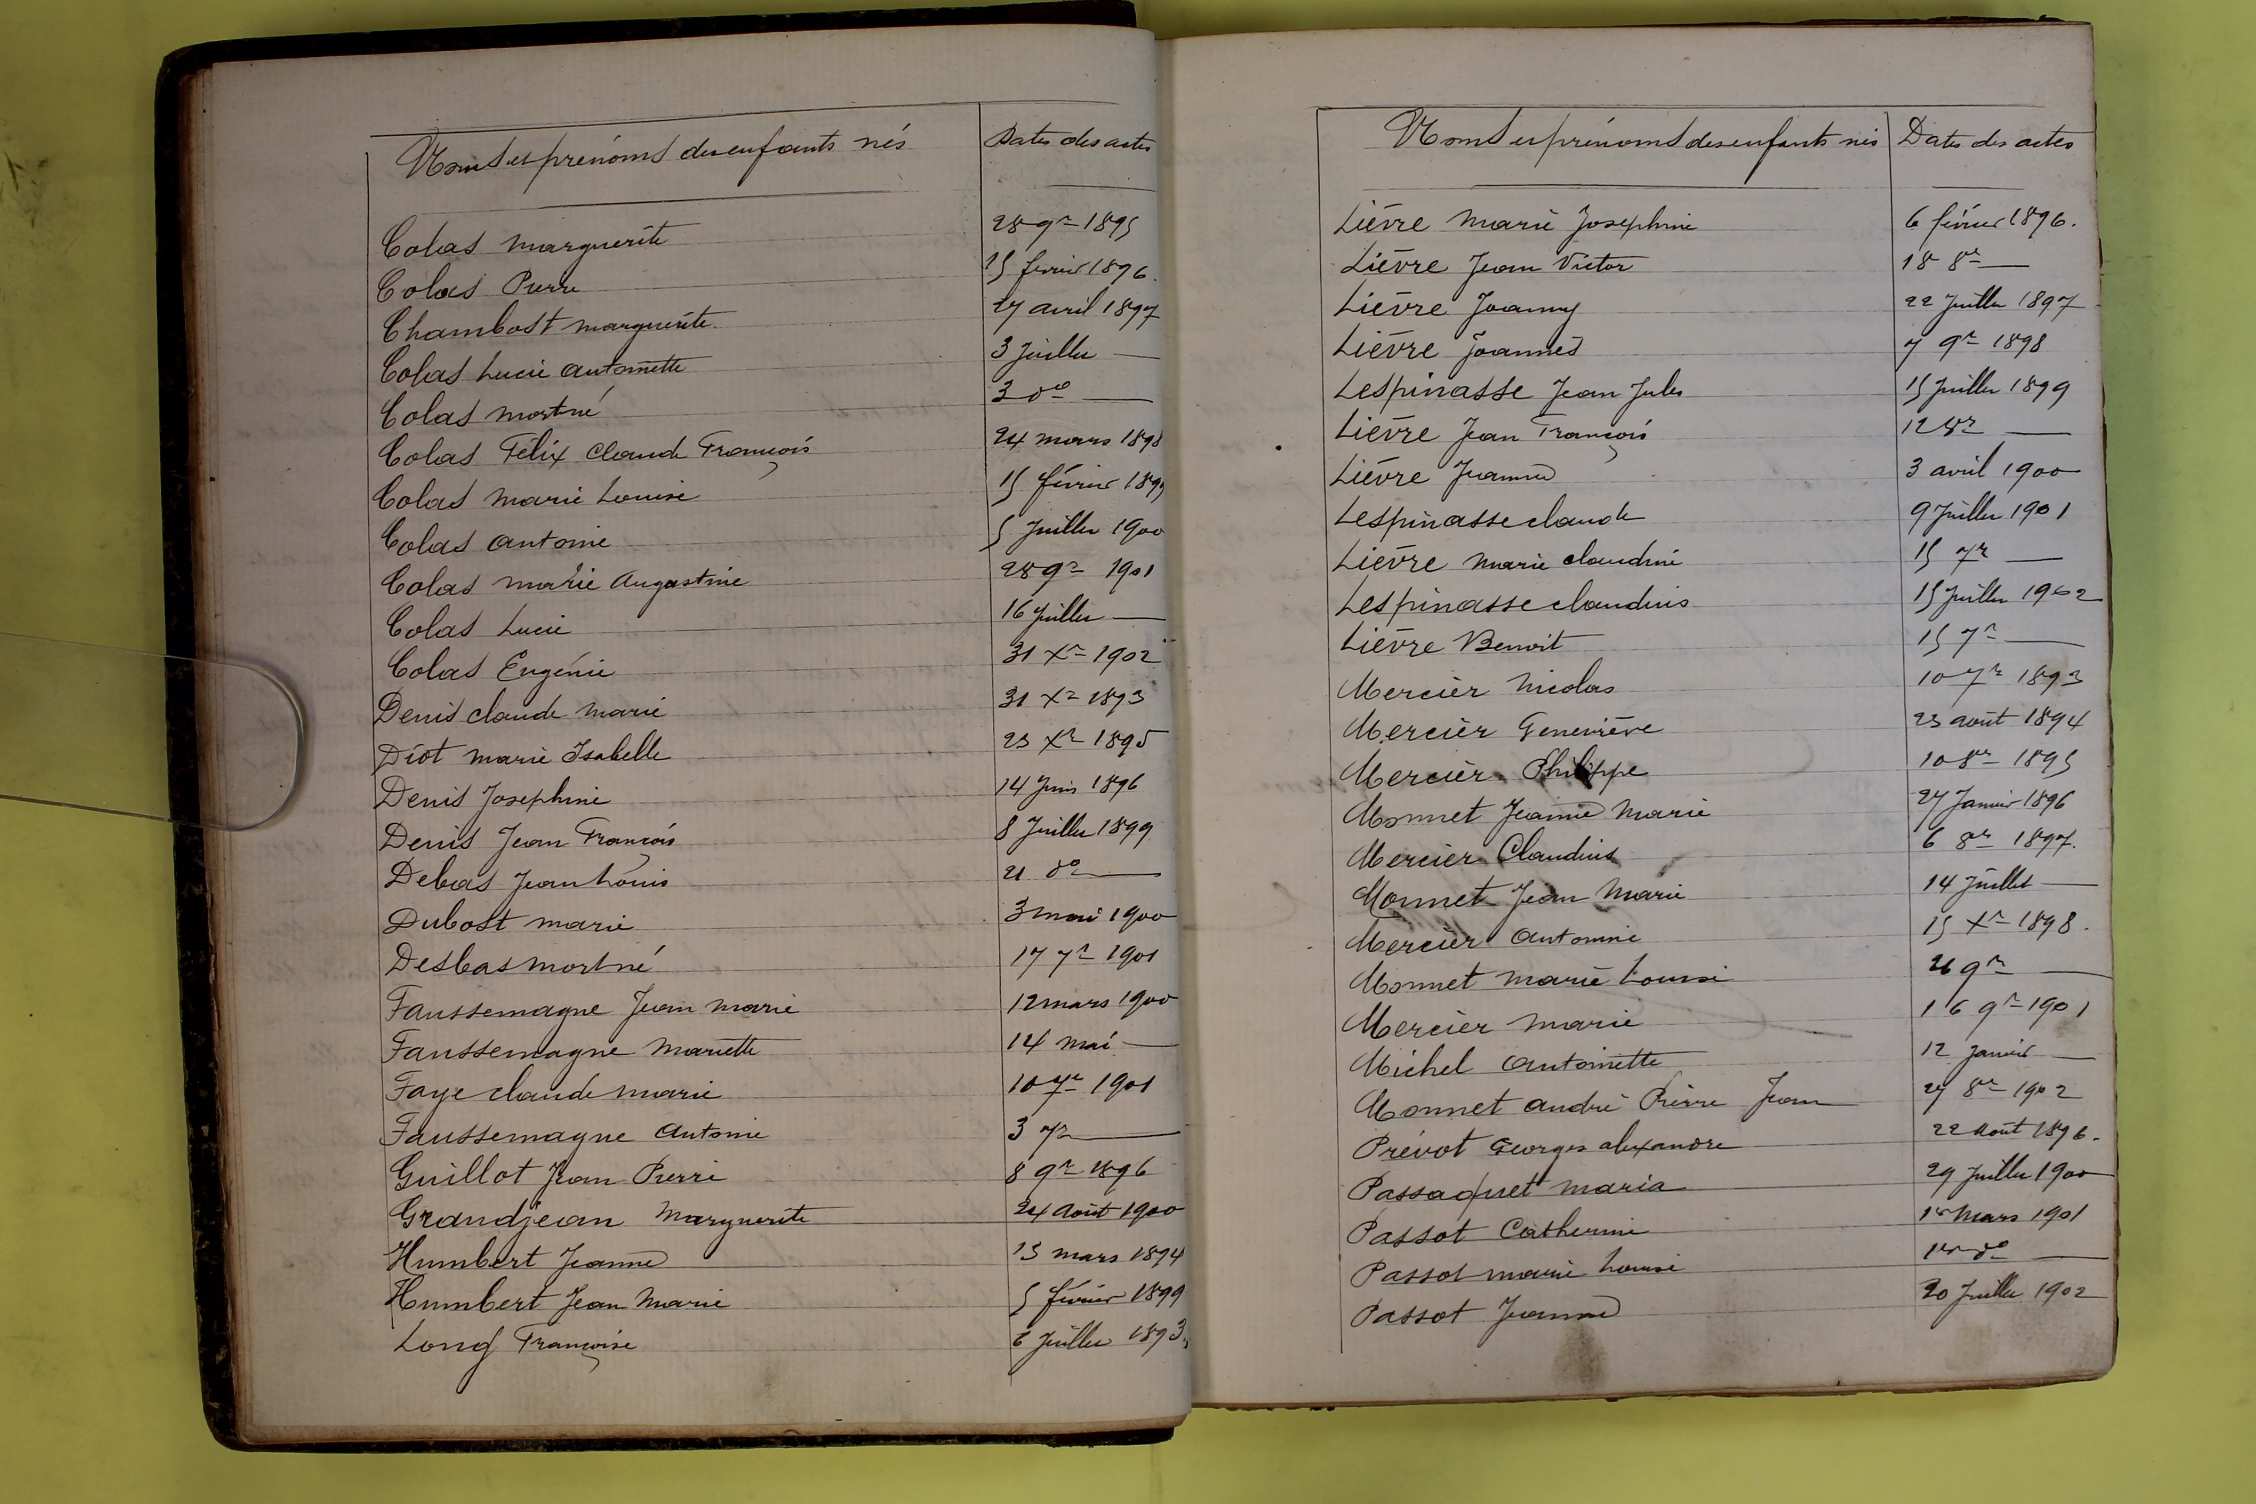 Noms et prénoms des enfants nés Dates des actes
Colas Marguerite 28 9re 1895
Colas Pierre 15 février 1896.
Chambost Marguerite 27 avril 1897
Colas Lucie Antoinette 3 Juillet —
Colas mort né 3 do —
Colas Félix Claude François 24 mars 1898
Colas Marie Louise 15 février 1899
Colas Antoine 5 Juillet 1900
Colas Marie Augustine 28 9re 1901
Colas Lucie 16 Juillet —
Colas Eugénie 31 Xre 1902
Denis Claude Marie 31 Xre 1893
Diot Marie Isabelle 23 Xre 1895
Denis Josephine 14 Juin 1896
Denis Jean François 8 Juillet 1899
Debas Jean Louis 21 do —
Dubost Marie 3 mai 1900
Desbas mort né 17 7re 1901
Faussemagne Jean Marie 12 mars 1900
Faussemagne Mariette 14 mai —
Faye Claude Marie 10 7re 1901
Faussemagne Antoine 3 7re —
Guillot Jean Pierre 8 9re 1896
Grandjean Marguerite 24 Août 1900
Humbert Jeanne 15 mars 1894
Humbert Jean Marie 5 février 1899
Long Françoise 6 Juillet 1893
Noms et prénoms des enfants nés Dates des actes
Lièvre Marie Josephine 6 février 1896.
Lièvre Jean Victor 18 8re —
Lièvre Joanny 22 Juillet 1897
Lièvre Joannès 7 9re 1898
Lespinasse Jean Jules 15 Juillet 1899
Lièvre Jean François 12 8re —
Lièvre Jeanne 3 avril 1900
Lespinasse Claude 9 Juillet 1901
Lièvre Marie Claudine 15 7re —
Lespinasse Claudius 15 Juillet 1902
Lièvre Benoit 15 7re —
Mercier Nicolas 10 7re 1893
Mercier Geneviève 23 août 1894
Mercier Philippe 10 8re 1895
Monnet Jeanne Marie 27 Janvier 1896
Mercier Claudius 6 8re 1897.
Monnet Jean Marie 14 Juillet —
Mercier Antoinie 15 Xre 1898.
Monnet Marie Louise 26 9re —
Mercier Marie 16 9re 1901
Michel Antoinette 12 Janvier —
Monnet André Pierre Jean 27 8re 1902
Prévot Georges Alexandre 22 Août 1896.
Passaquet Maria 29 Juillet 1900
Passot Catherine Mars 1901
Passot Marie Louise do —
Passot Jeanne 20 Juillet 1902